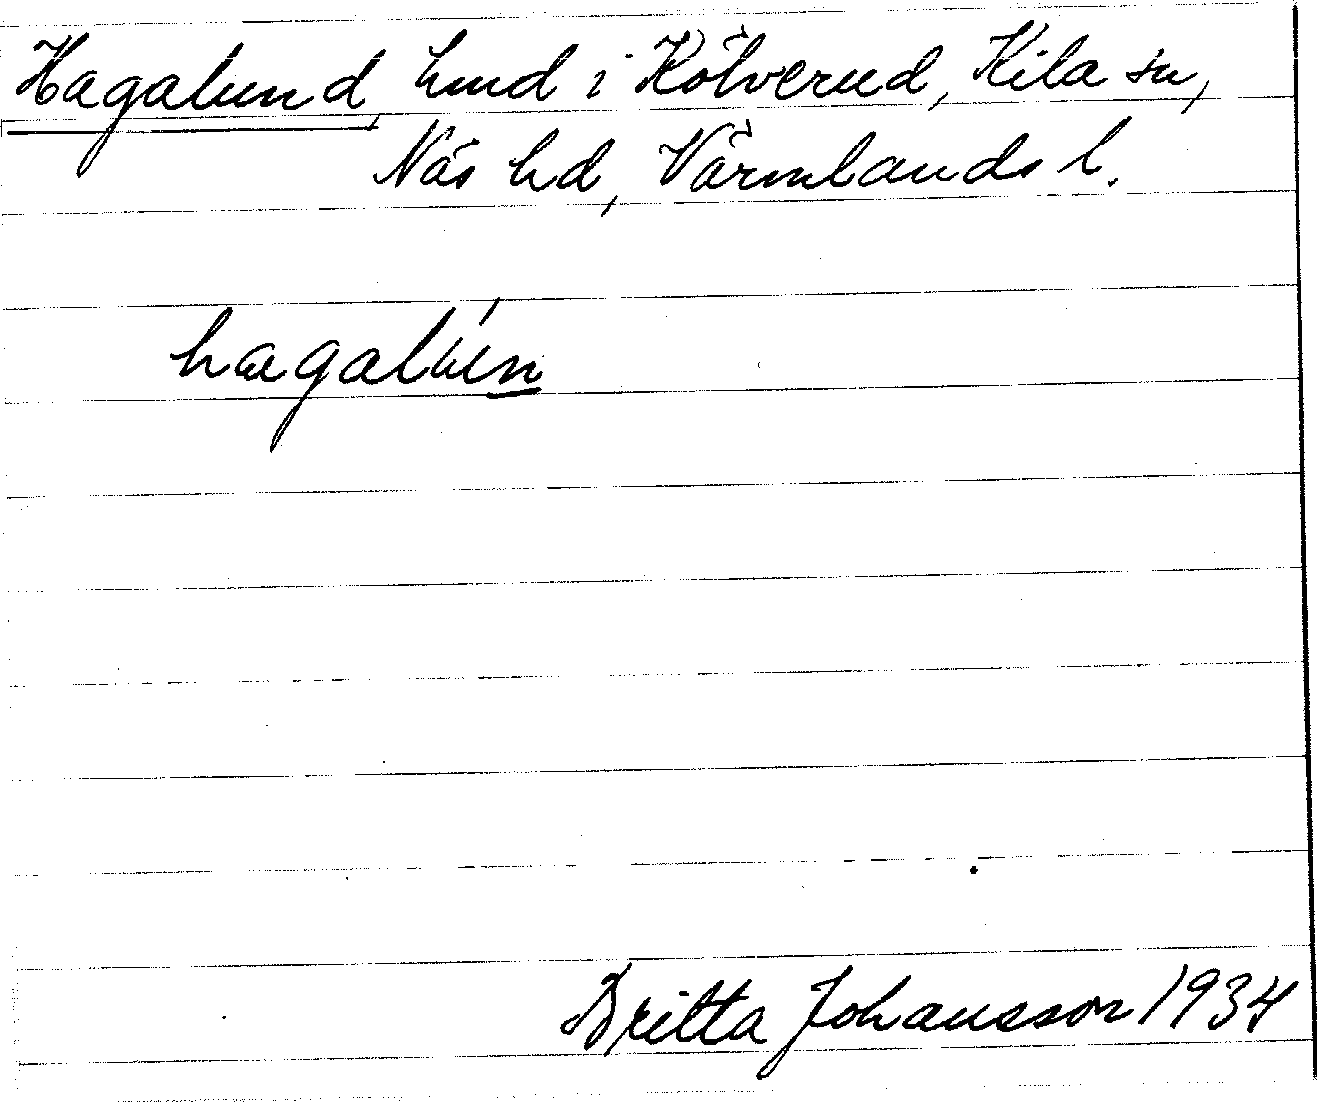 Hagalund, hmd i Kölverud, Kila sn,
Näs hd, Värmlands l.
hagalún
Britta Johansson 1934